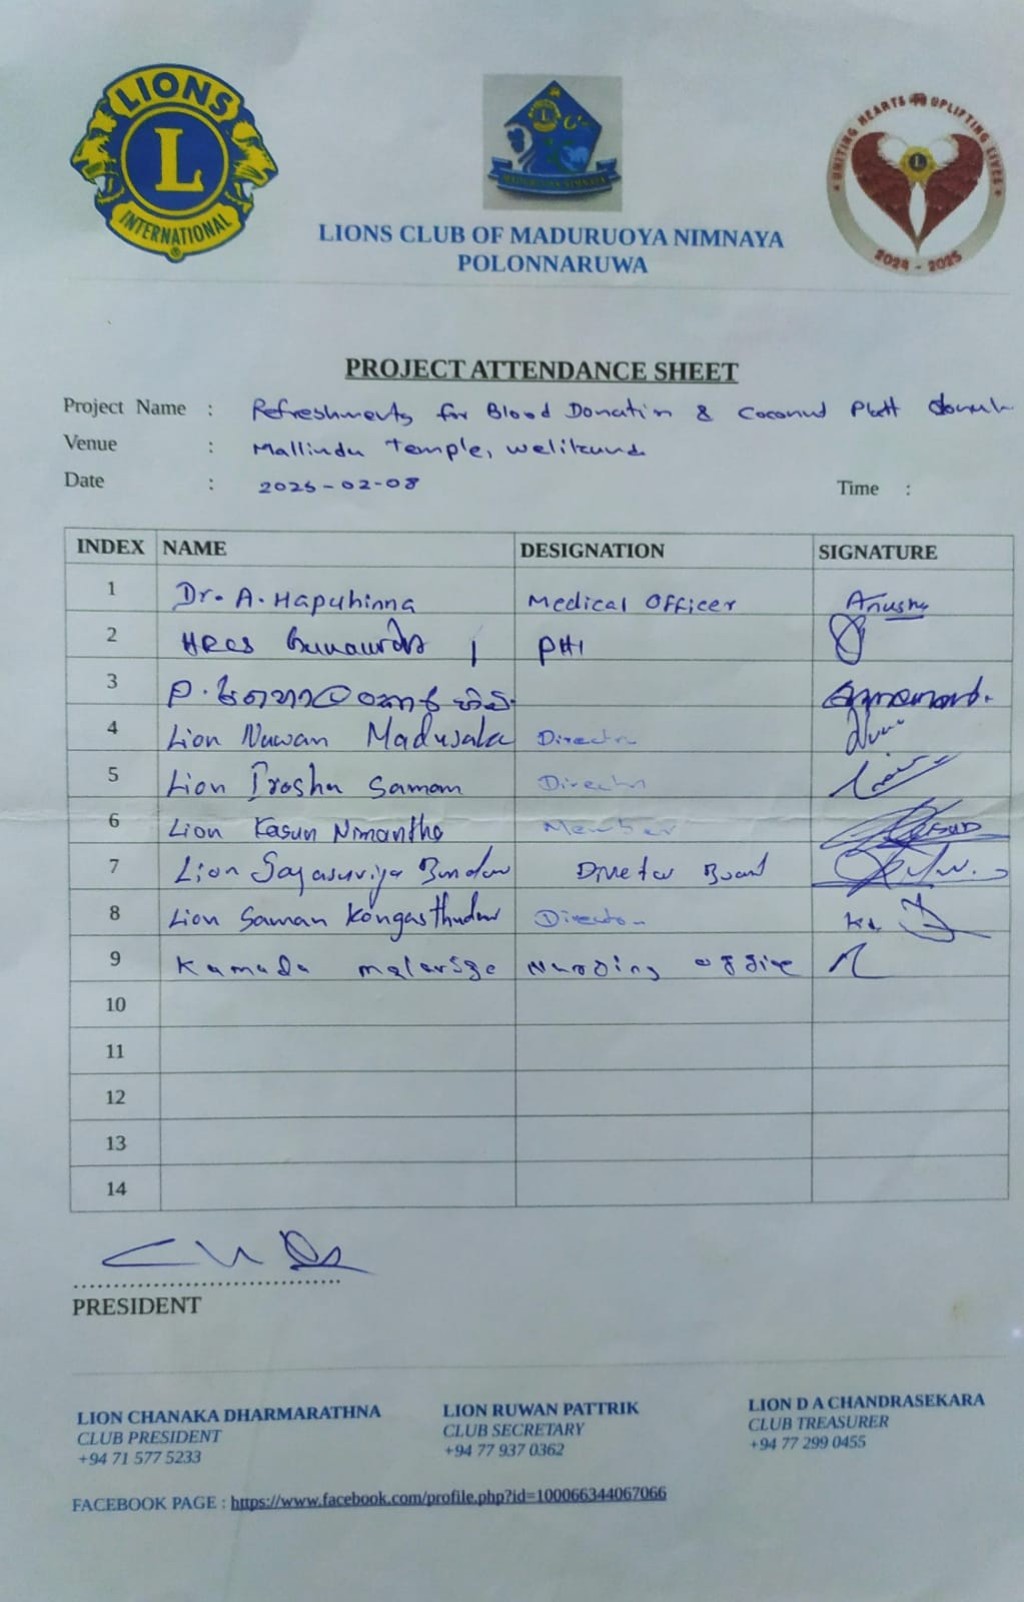 LIONS
L
INTERNATIONAL
MADURUOYA NIMNAYA
UNITING HEARTS UPLIFTING LIVES
2024 - 2025
LIONS CLUB OF MADURUOYA NIMNAYA
POLONNARUWA
PROJECT ATTENDANCE SHEET
Project Name : Refreshments for Blood Donation & Coconut
Venue : Mallindu Temple,
Date : 2025-02-08 Time :
INDEX NAME DESIGNATION SIGNATURE
1 Dr. A. Hapuhinna Medical Officer Anusha
2 HRCS PHI
3
4 Lion Nuwan Madusala Director
5 Lion Irosha Saman Director
6 Lion Kasun Nimantha Member
7 Lion Board
8 Lion Saman Director
9 Nursing
10
11
12
13
14
PRESIDENT
LION CHANAKA DHARMARATHNA
CLUB PRESIDENT
+94 71 577 5233
LION RUWAN PATTRIK
CLUB SECRETARY
+94 77 937 0362
LION D A CHANDRASEKARA
CLUB TREASURER
+94 77 299 0455
FACEBOOK PAGE : https://www.facebook.com/profile.php?id=100066344067066